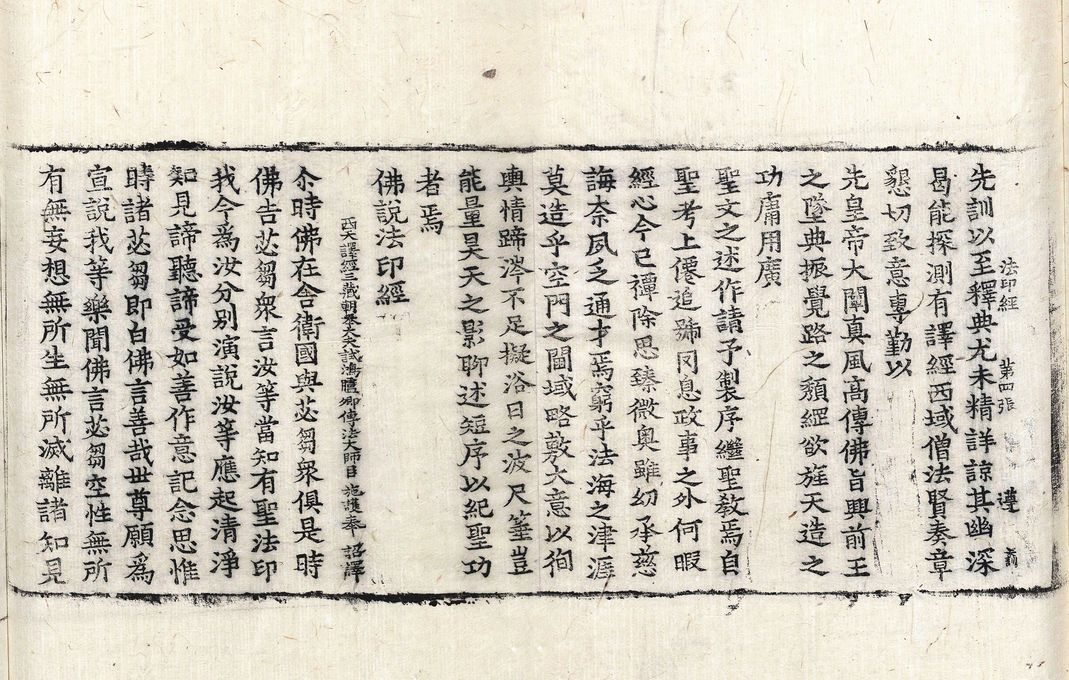 先訓以至釋典尤未精詳諒其幽深
法印經 第四張 遵
曷能探測有譯經西域僧法賢奏章
懇切致意專勤以
先皇帝大闡真風高傳佛旨興前王
之墜典振覺路之頹綱欲旌天造之
功庸用廣
聖文之述作請予製序繼聖教焉自
聖考上僊追號罔息政事之外何暇
經心今已禫除思臻微奧雖幼承慈
誨柰夙乏通才焉窮乎法海之津涯
莫造乎空門之閫域略敷大意以徇
輿情蹄涔不足擬浴日之波尺箠豈
能量昊天之影聊述短序以紀聖功
者焉
佛說法印經
西天譯經三藏朝奉大夫試鴻臚卿傳法大師臣 施護奉 詔譯
尒時佛在舍衛國與苾芻衆俱是時
佛告苾芻衆言汝等當知有聖法印
我今爲汝分別演說汝等應起清淨
知見諦聽諦受如善作意記念思惟
時諸苾芻即白佛言善哉世尊願爲
宣說我等樂聞佛言苾芻空性無所
有無妄想無所生無所滅離諸知見